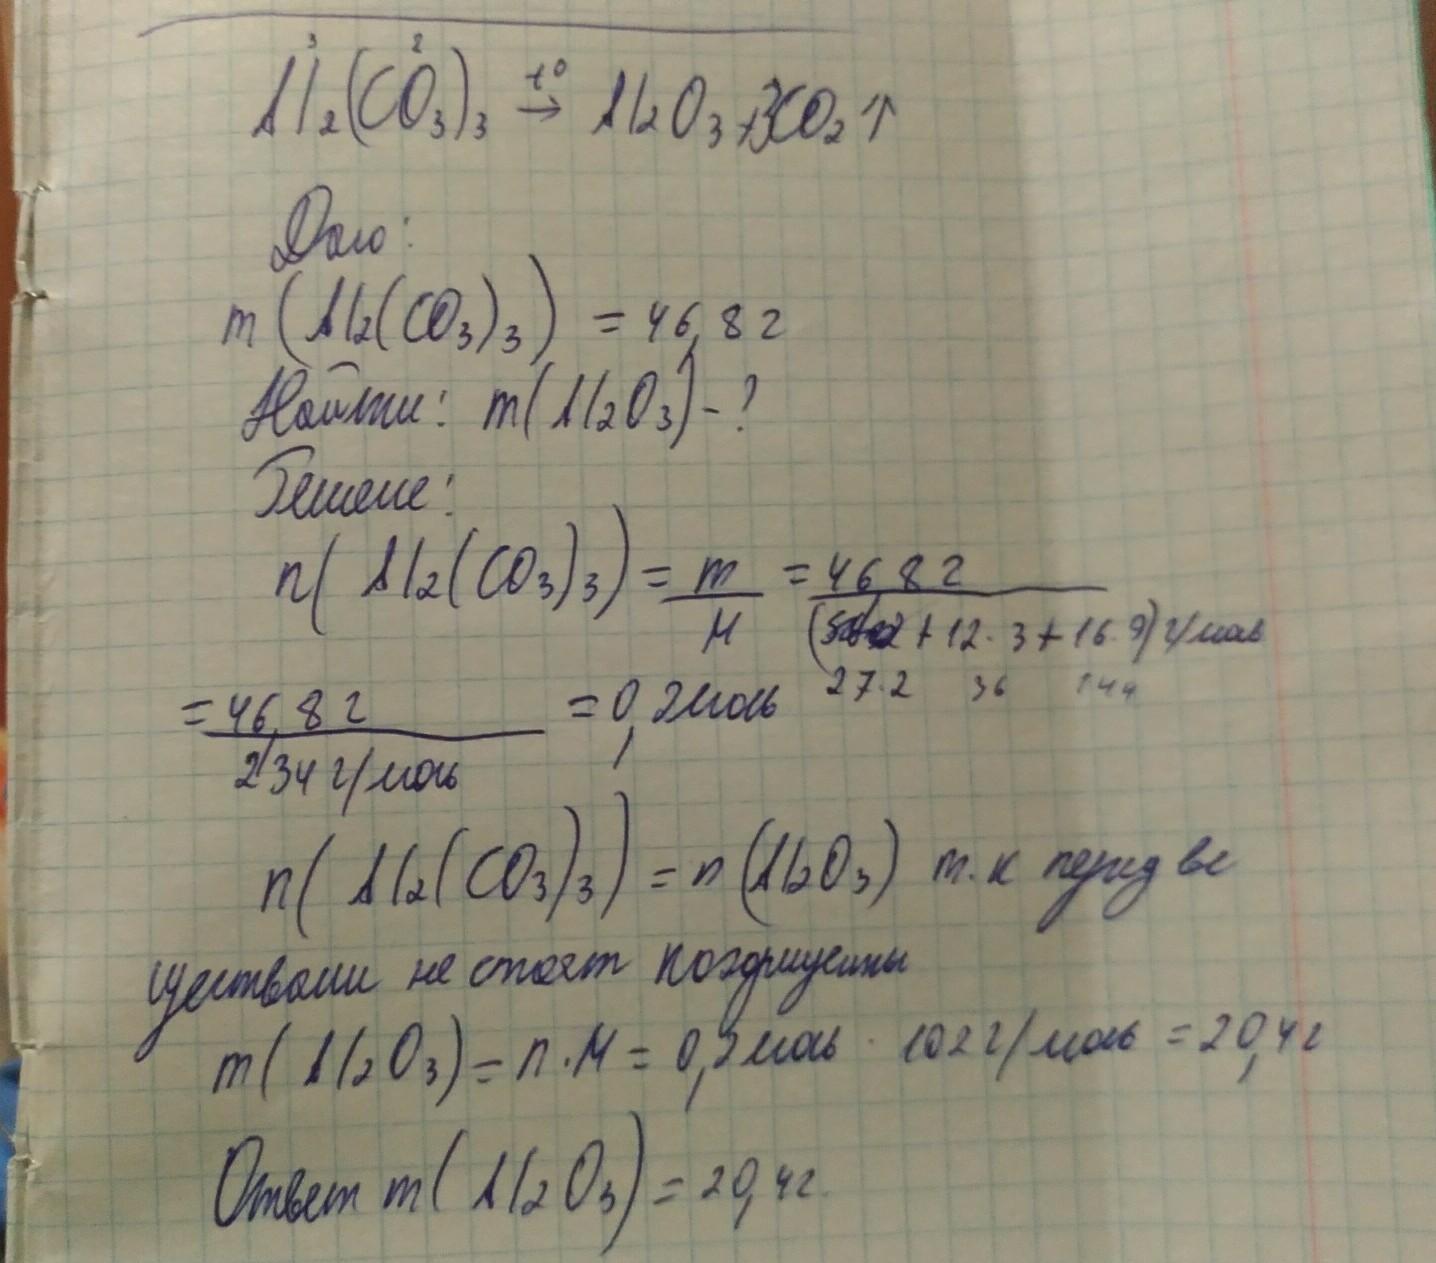 3 2
Al₂(CO₃)₃ t° → Al₂O₃ + 3CO₂ ↑
Дано:
m(Al₂(CO₃)₃) = 46,8 г
Найти: m(Al₂O₃) - ?
Решение:
n(Al₂(CO₃)₃) = m/M = 46,8 г / ( + 12·3 + 16·9) г/моль
27·2 36 144
= 46,8 г / 234 г/моль = 0,2 моль
n(Al₂(CO₃)₃) = n(Al₂O₃) т.к перед ве
ществами не стоят коэффициенты
m(Al₂O₃) = n·M = 0,2 моль · 102 г/моль = 20,4 г
Ответ m(Al₂O₃) = 20,4 г.